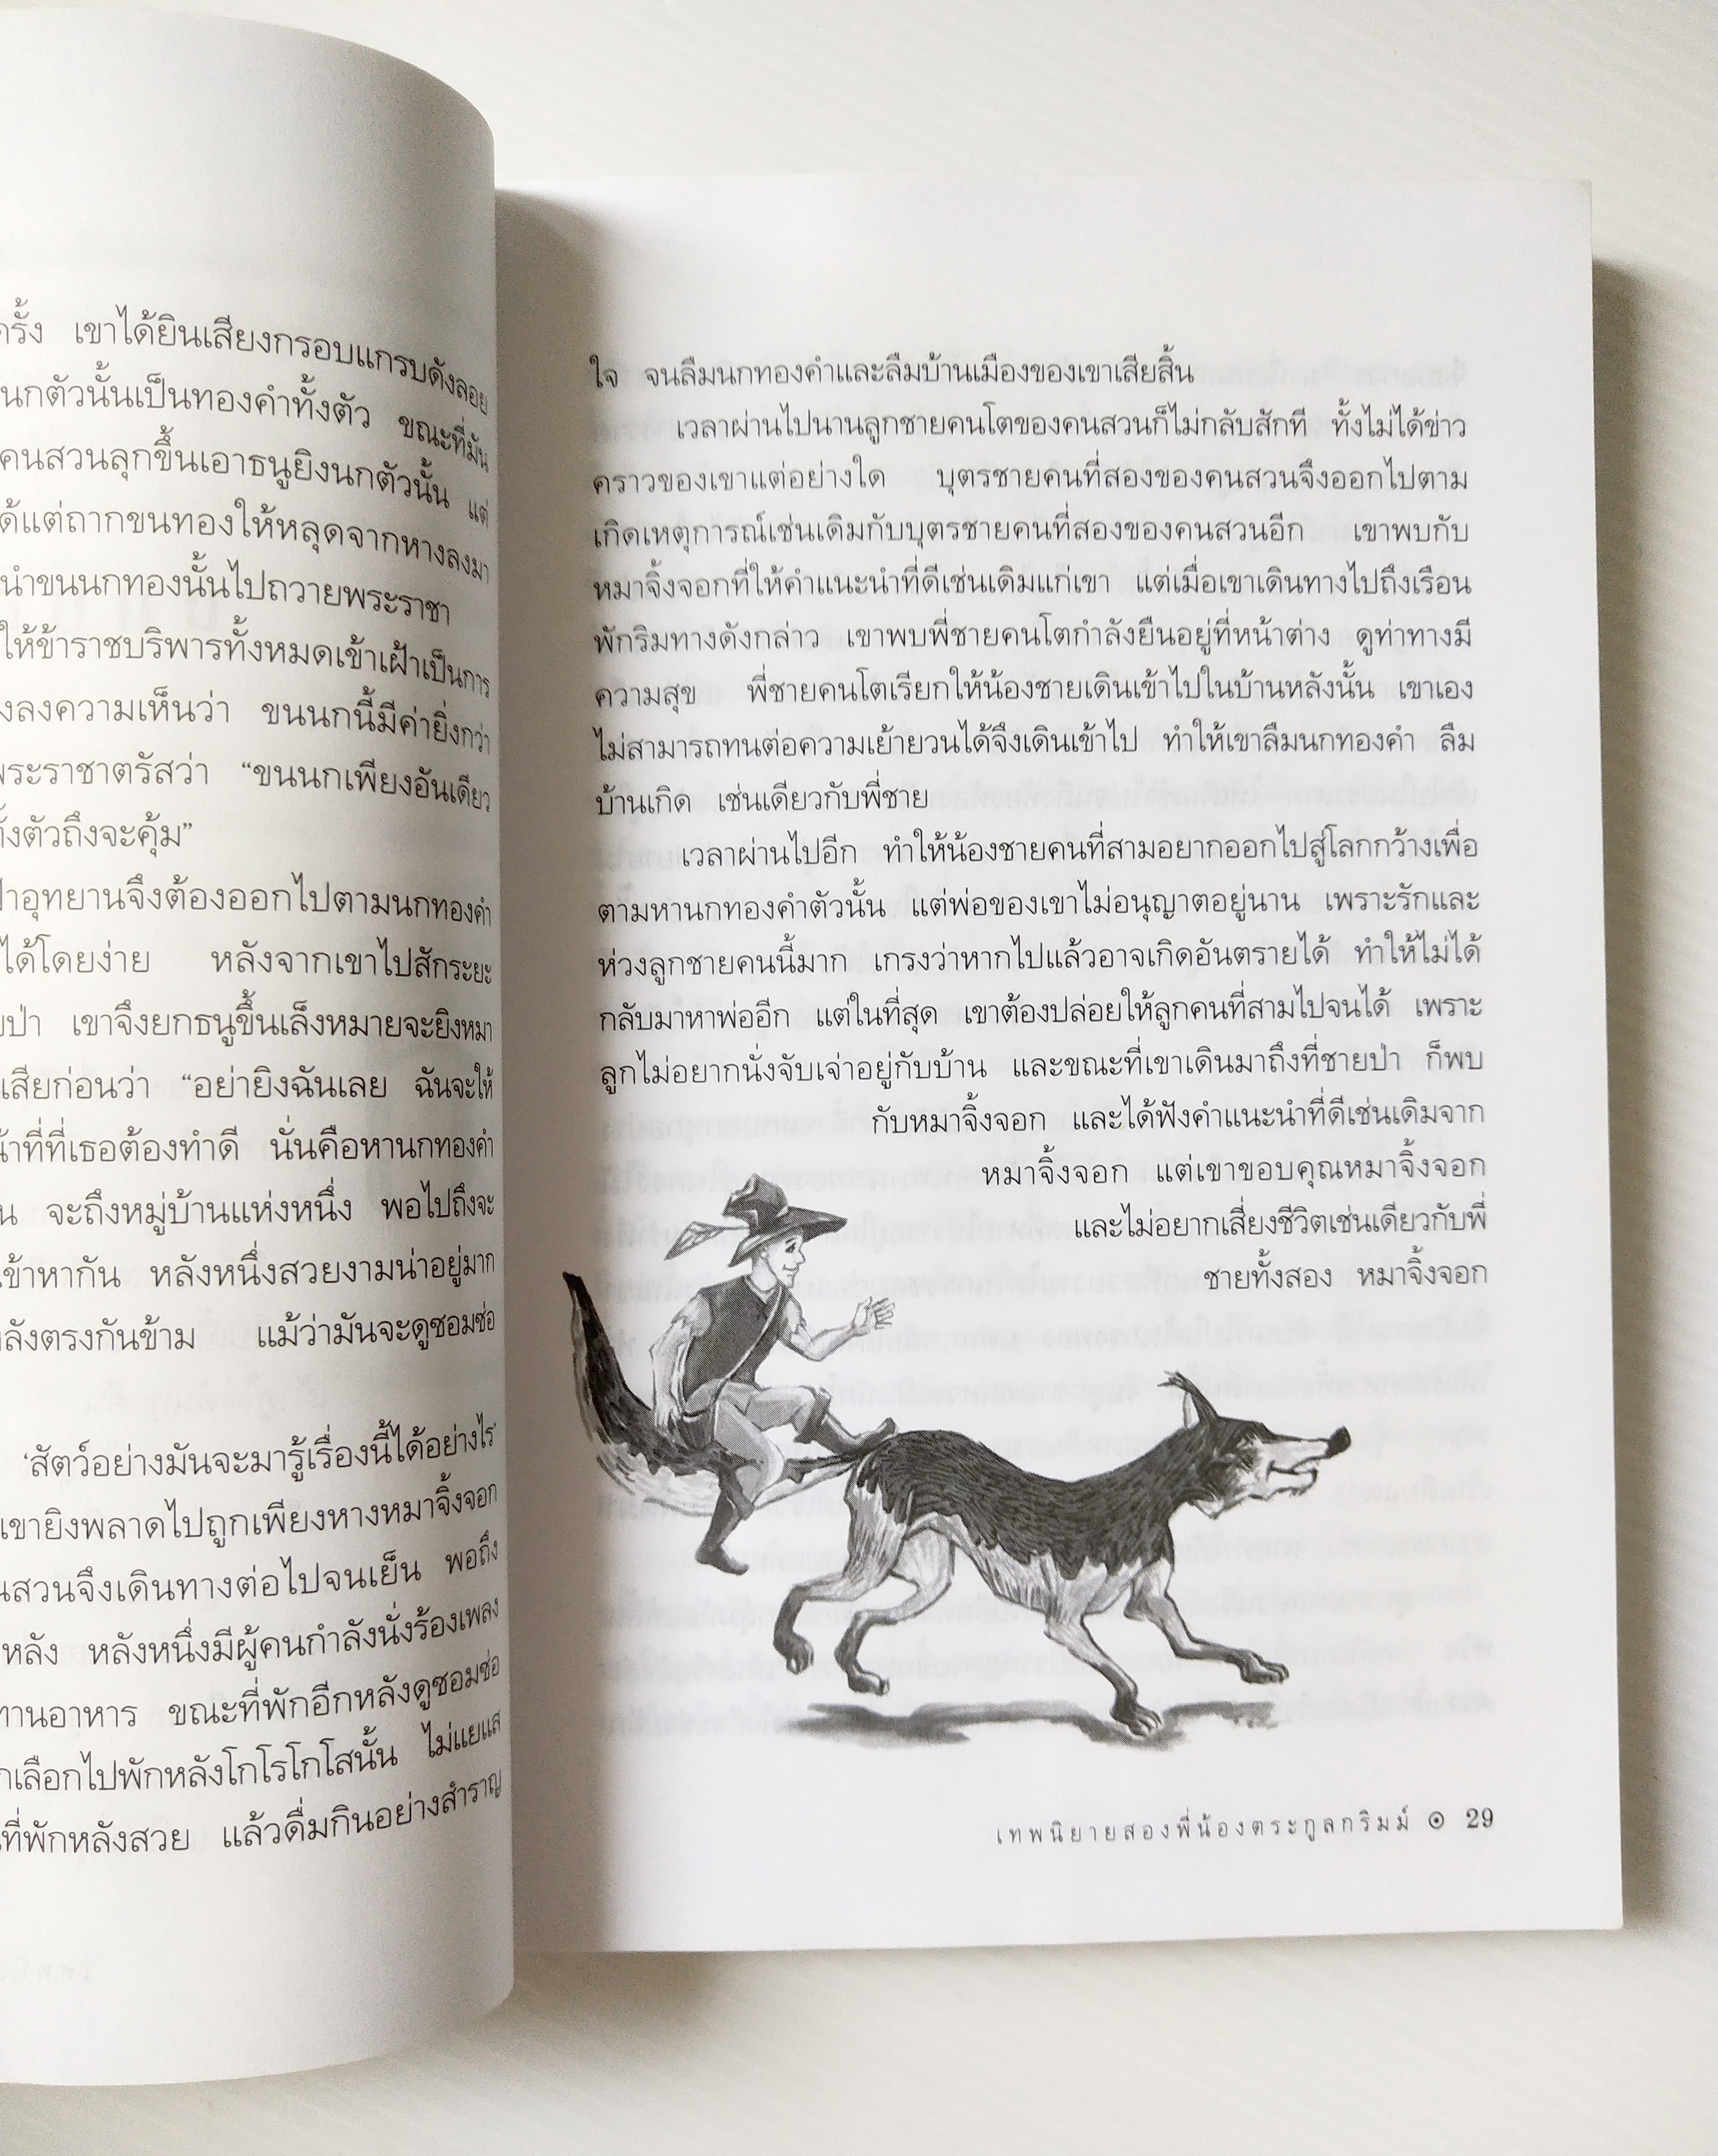 ครั้ง เขาได้ยินเสียงกรอบแกรบดังลอย
นกตัวนั้นเป็นทองคำทั้งตัว ขณะที่มัน
คนสวนลุกขึ้นเอาธนูยิงนกตัวนั้น แต่
ได้แต่ถากขนทองให้หลุดจากหางลงมา
นำขนนกทองนั้นไปถวายพระราชา
ให้ข้าราชบริพารทั้งหมดเข้าเฝ้าเป็นการ
ลงความเห็นว่า ขนนกนี้มีค่ายิ่งกว่า
พระราชาตรัสว่า “ขนนกเพียงอันเดียว
ทั้งตัวถึงจะคุ้ม”
อุทยานจึงต้องออกไปตามนกทองคำ
ได้โดยง่าย หลังจากเขาไปสักระยะ
ป่า เขาจึงยกธนูขึ้นเล็งหมายจะยิงหมา
เสียก่อนว่า “อย่ายิงฉันเลย ฉันจะให้
ที่เธอต้องทำดี นั่นคือหานกทองคำ
จะถึงหมู่บ้านแห่งหนึ่ง พอไปถึงจะ
เข้าหากัน หลังหนึ่งสวยงามน่าอยู่มาก
หลังตรงกันข้าม แม้ว่ามันจะดูซอมซ่อ
‘สัตว์อย่างมันจะมารู้เรื่องนี้ได้อย่างไร
เขายิงพลาดไปถูกเพียงหางหมาจิ้งจอก
สวนจึงเดินทางต่อไปจนเย็น พอถึง
หลัง หลังหนึ่งมีผู้คนกำลังนั่งร้องเพลง
ทานอาหาร ขณะที่พักอีกหลังดูซอมซ่อ
เลือกไปพักหลังโกโรโกโสนั้น ไม่แยแส
ที่พักหลังสวย แล้วดื่มกินอย่างสำราญ
ใจ จนลืมนกทองคำและลืมบ้านเมืองของเขาเสียสิ้น
เวลาผ่านไปนานลูกชายคนโตของคนสวนก็ไม่กลับสักที ทั้งไม่ได้ข่าว
คราวของเขาแต่อย่างใด บุตรชายคนที่สองของคนสวนจึงออกไปตาม
เกิดเหตุการณ์เช่นเดิมกับบุตรชายคนที่สองของคนสวนอีก เขาพบกับ
หมาจิ้งจอกที่ให้คำแนะนำที่ดีเช่นเดิมแก่เขา แต่เมื่อเขาเดินทางไปถึงเรือน
พักริมทางดังกล่าว เขาพบพี่ชายคนโตกำลังยืนอยู่ที่หน้าต่าง ดูท่าทางมี
ความสุข พี่ชายคนโตเรียกให้น้องชายเดินเข้าไปในบ้านหลังนั้น เขาเอง
ไม่สามารถทนต่อความเย้ายวนได้จึงเดินเข้าไป ทำให้เขาลืมนกทองคำ ลืม
บ้านเกิด เช่นเดียวกับพี่ชาย
เวลาผ่านไปอีก ทำให้น้องชายคนที่สามอยากออกไปสู่โลกกว้างเพื่อ
ตามหานกทองคำตัวนั้น แต่พ่อของเขาไม่อนุญาตอยู่นาน เพราะรักและ
ห่วงลูกชายคนนี้มาก เกรงว่าหากไปแล้วอาจเกิดอันตรายได้ ทำให้ไม่ได้
กลับมาหาพ่ออีก แต่ในที่สุด เขาต้องปล่อยให้ลูกคนที่สามไปจนได้ เพราะ
ลูกไม่อยากนั่งจับเจ่าอยู่กับบ้าน และขณะที่เขาเดินมาถึงที่ชายป่า ก็พบ
กับหมาจิ้งจอก และได้ฟังคำแนะนำที่ดีเช่นเดิมจาก
หมาจิ้งจอก แต่เขาขอบคุณหมาจิ้งจอก
และไม่อยากเสี่ยงชีวิตเช่นเดียวกับพี่
ชายทั้งสอง หมาจิ้งจอก
เทพนิยายสองพี่น้องตระกูลกริมม์ ๏ 29